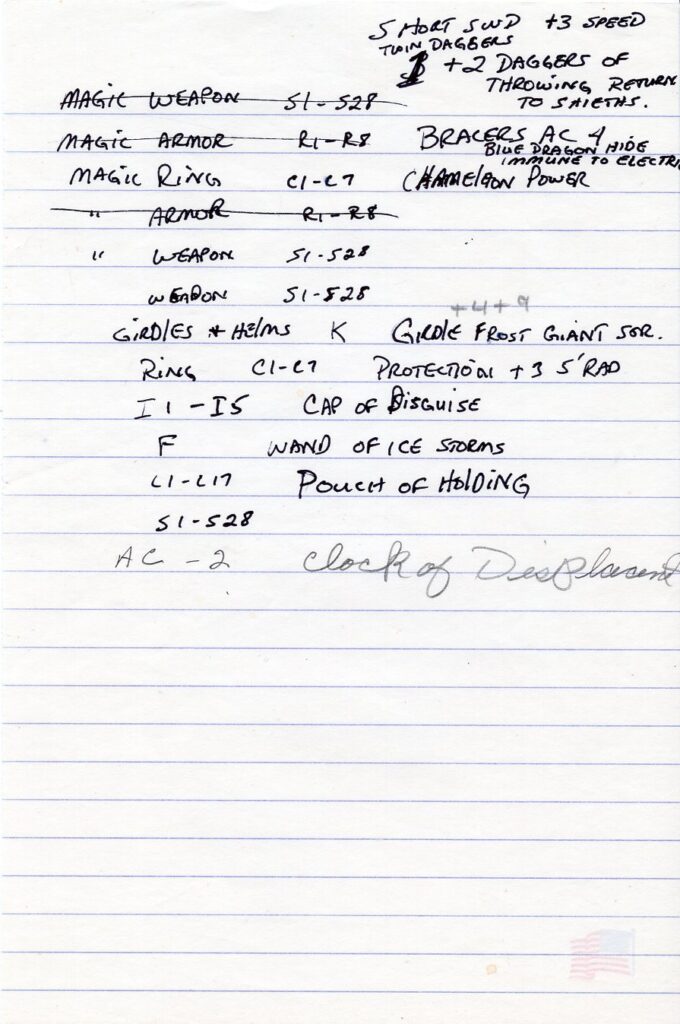 SHORT SWD +3 SPEED
TWIN DAGGERS
+2 DAGGERS OF
THROWING RETURN
TO SHIETHS.
MAGIC WEAPON S1-S28
MAGIC ARMOR R1-R8 BRACERS AC 4
BLUE DRAGON HIDE
IMMUNE TO ELECTRI
MAGIC RING C1-C7 CHAMELEON POWER
" ARMOR R1-R8
" WEAPON S1-S28
WEAPON S1-S28
+4+9
GIRDLES + HELMS K GIRDLE FROST GIANT STR.
RING C1-C7 PROTECTION +3 5' RAD
I1-I5 CAP OF DISGUISE
F WAND OF ICE STORMS
L1-L17 POUCH OF HOLDING
S1-S28
AC -2 Clock of Displacment